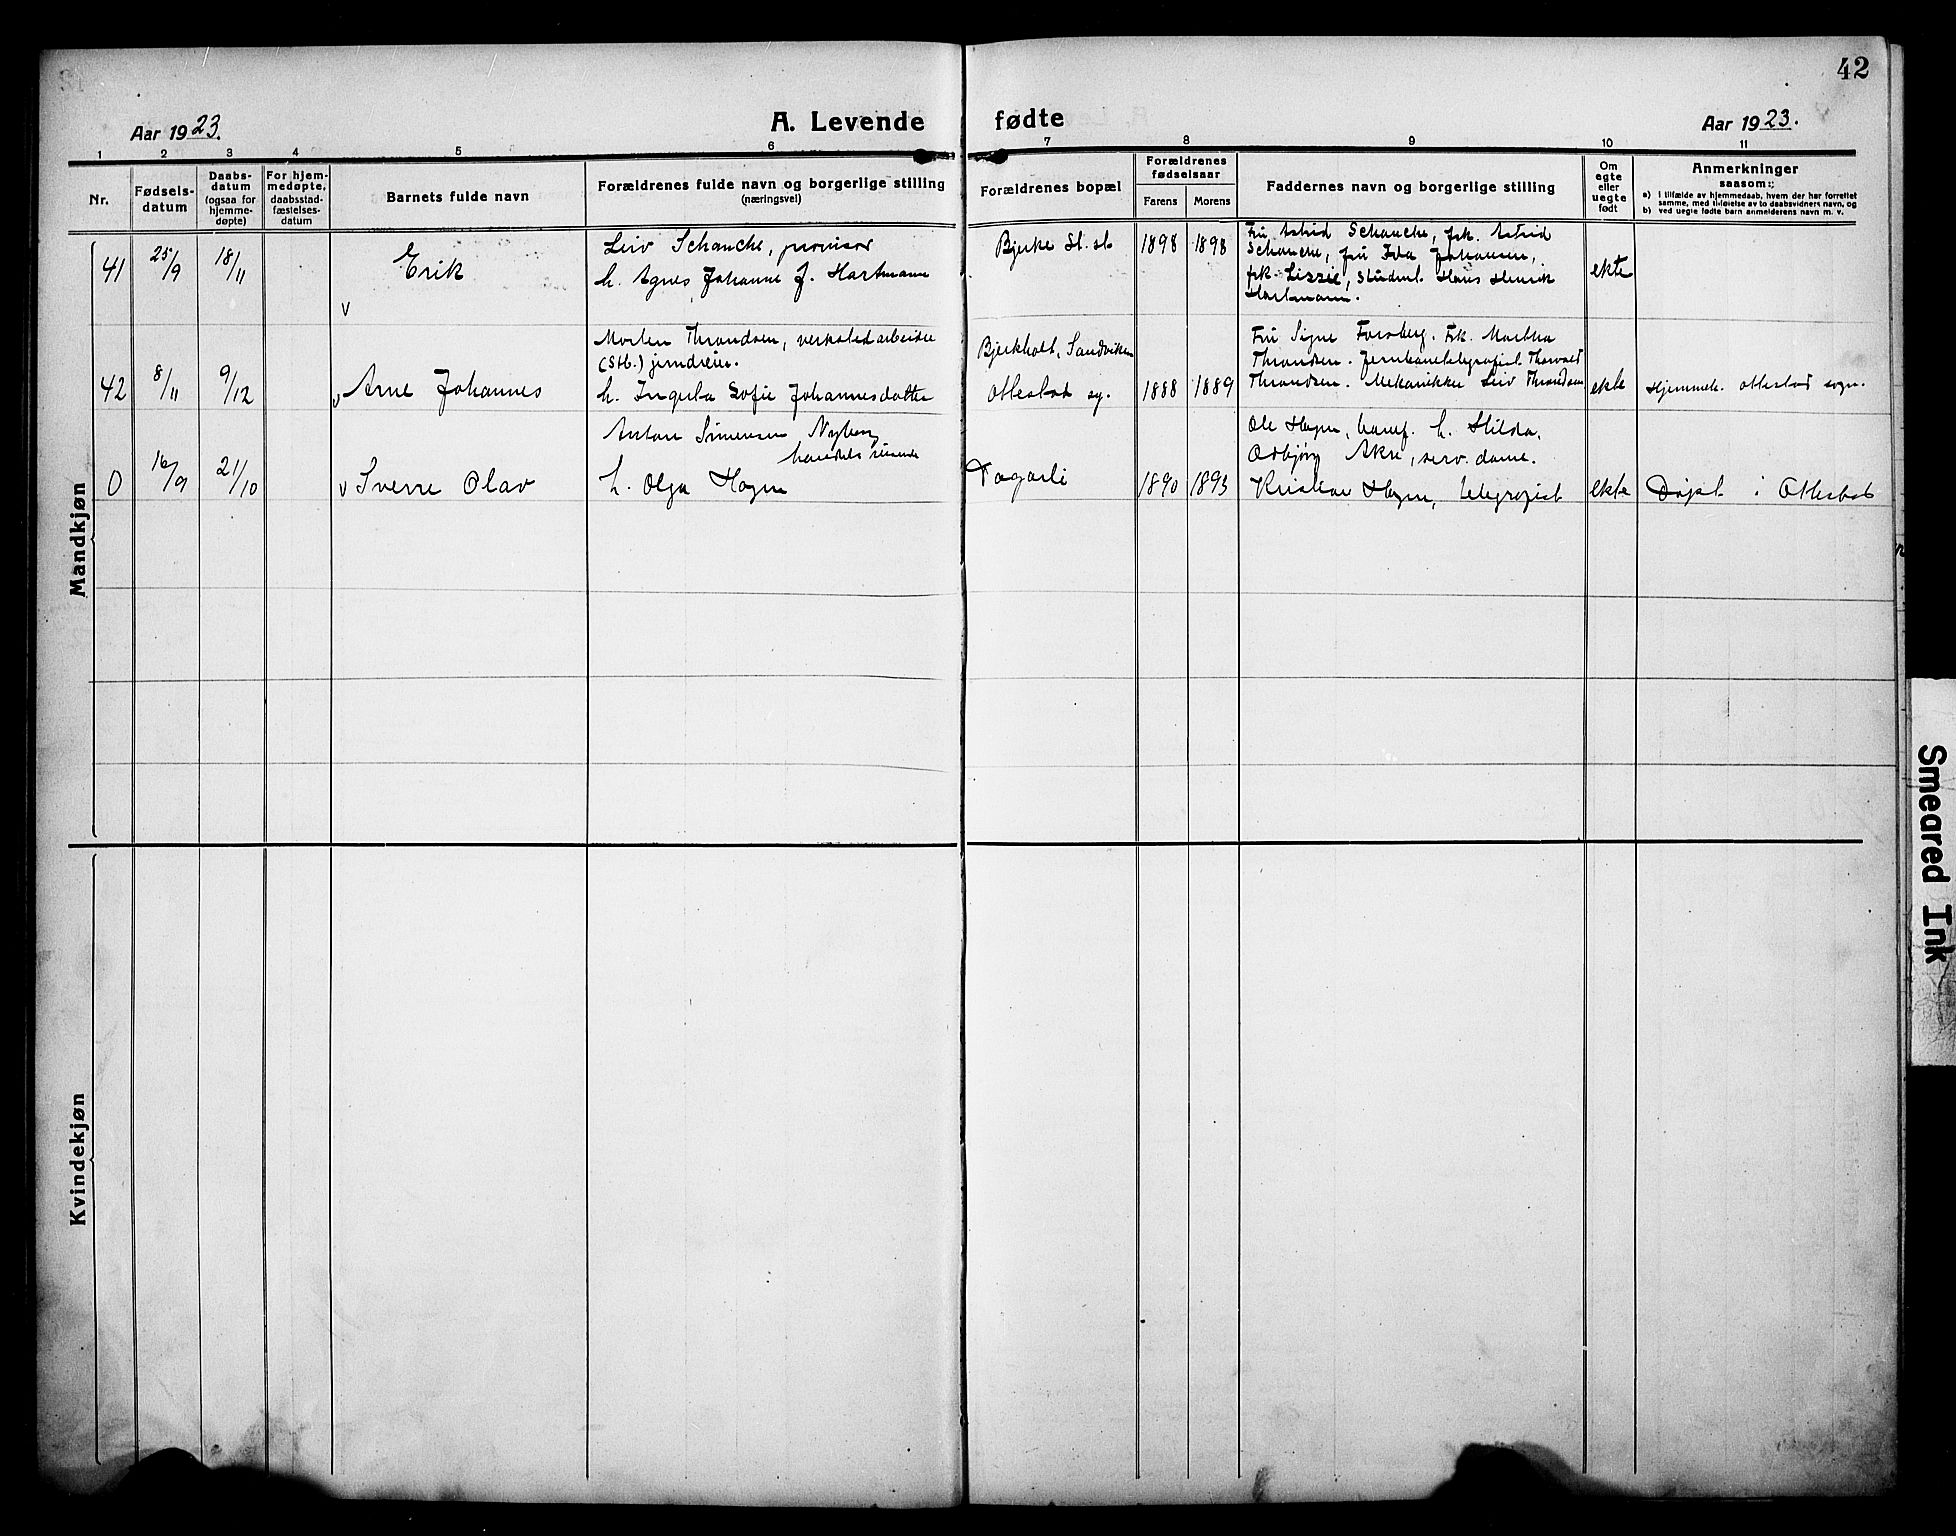 42
Aar 1923.
A. Levende fødte
Aar 1923.
1 2 3 4 5 6 7 8 9 10 11
Nr.
Fødsels-
datum
Daabs-
datum
(ogsaa for
hjemme-
døpte)
For hjem-
medøpte,
daabsstad-
fæstelses-
datum
Barnets fulde navn
Forældrenes fulde navn og borgerlige stilling
(næringsvei)
Forældrenes bopæl
Forældrenes
fødselsaar
Farens Morens
Faddernes navn og borgerlige stilling
Om
egte
eller
uegte
født
Anmerkninger
saasom:
a) i tilfælde av hjemmedaab, hvem der har forrettet
samme, med tilføielse av to daabsvidners navn, og
b) ved uegte fødte barn anmelderens navn m. v.
Mandkjøn
41
25/9
18/11
Erik
Leiv Schanche, provisor
h. Agnes Johanne J. Hartmann
Bjerke St. st
1898 1898
Fru Astrid Schanche, frk. Astrid
Schanche, fru Johansen,
frk. Lizzie, student Hans Henrik
Hartmann.
ekte
42
8/11
9/12
Arne Johannes
Morten Throndsen, verksted arbeider
(Stb.) jerndreier.
h. Ingerba Sofie Johannesdatter
Bjerkholt, Sandviken
Ottestad sg.
1888 1889
Fru Signe Forsberg. Frk. Martha
Throndsen. Jernbanetelegrafist Thorvald
Throndsen. Mekanikker Leiv Throndsen
ekte
Hjemmeh. Ottestad sogn.
0
16/9
21/10
Sverre Olav
Anton Simensen Nyberg
handelsreisende
h. Olga Hagen
Fagerli
1890 1893
Ole Hagen, h. Hilda,
Asbjørg Akre, serv. dame.
Kristian Hagen, telegrafist
ekte
Døpt i Ottestad
Kvindekjøn
Smeared Ink